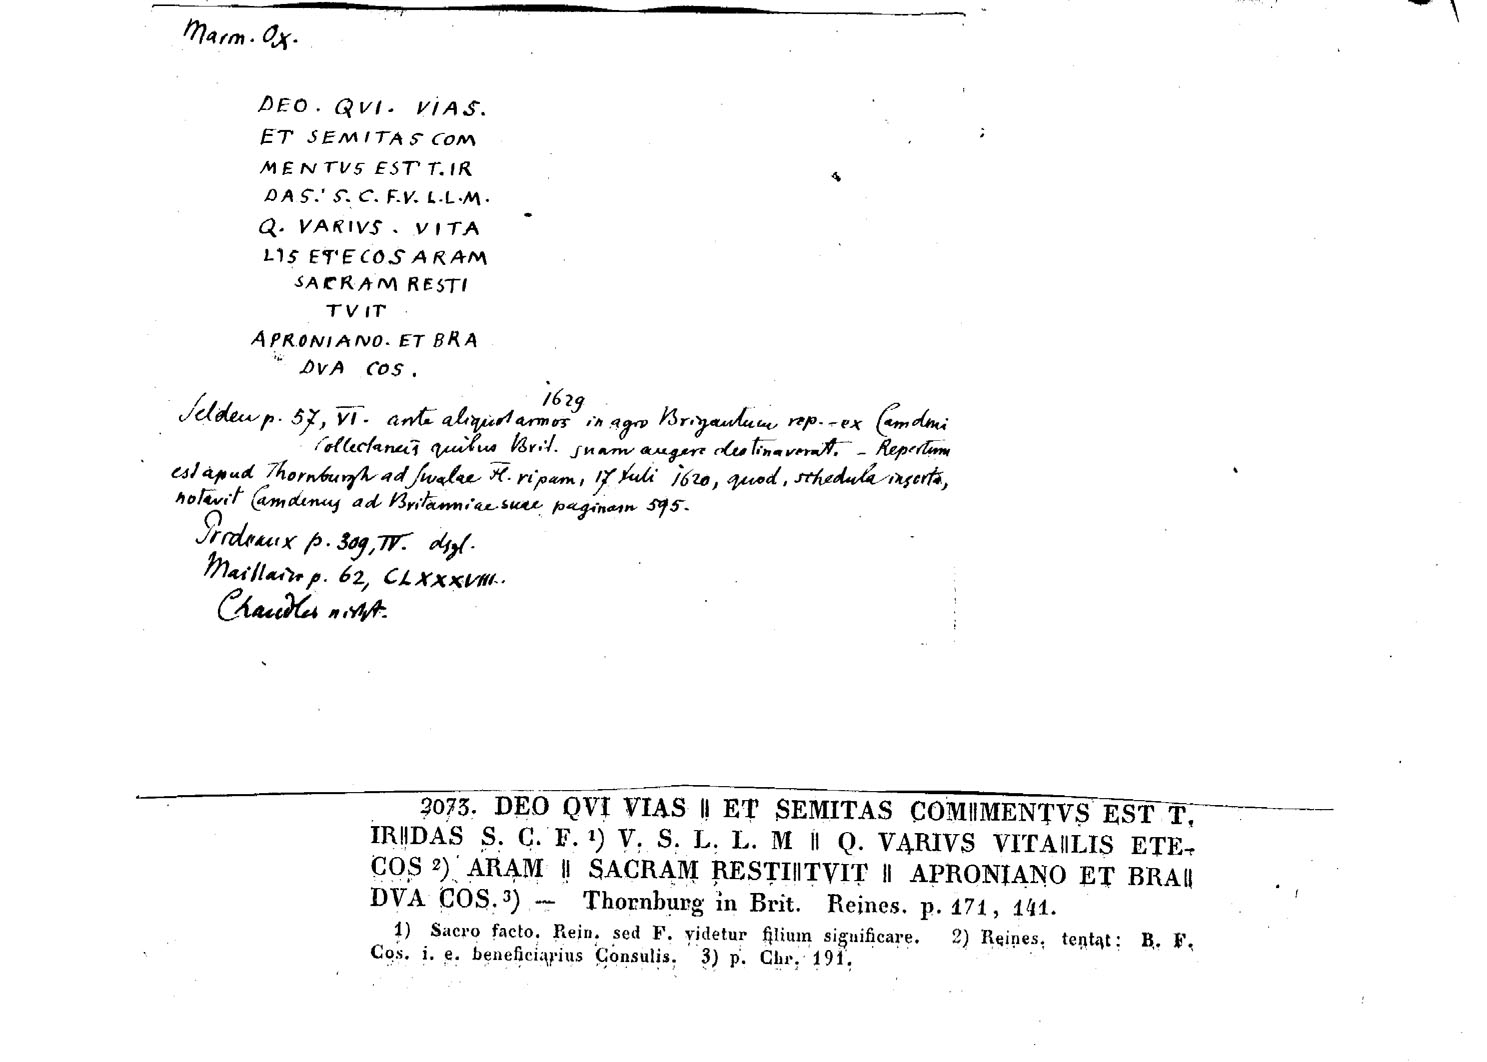 Marm. Ox.
DEO. QVI. VIAS.
ET SEMITAS COM
MENTVS EST T. IR
DAS. S. C. F. V. L. L. M.
Q. VARIVS. VITA
LIS ET ECOS ARAM
SACRAM RESTI
TVIT
APRONIANO. ET BRA
DVA COS.
1629
Selden p. 57, VI. ante aliquot annos in agro Brigantum rep. - ex Camdeni
Collectaneis quibus Brit. suam augere destinaverat. - Repertum
est apud Thornburgh ad Swalae fl. ripam, 17 Juli 1620, quod, schedula inserta,
notavit Camdenus ad Britanniae suae paginam 595.
Prideaux p. 309, IV. dsgl.
Maittaire p. 62, CLXXXVIII.
Chandler nicht.
2073. DEO QVI VIAS || ET SEMITAS COM||MENTVS EST T.
IR||DAS S. C. F. 1) V. S. L. L. M || Q. VARIVS VITA||LIS ETE-
COS 2) ARAM || SACRAM RESTI||TVIT || APRONIANO ET BRA||
DVA COS. 3) — Thornburg in Brit. Reines. p. 171, 141.
1) Sacro facto. Rein. sed F. videtur filium significare. 2) Reines. tentat: B. F.
Cos. i. e. beneficiarius Consulis. 3) p. Chr. 191.